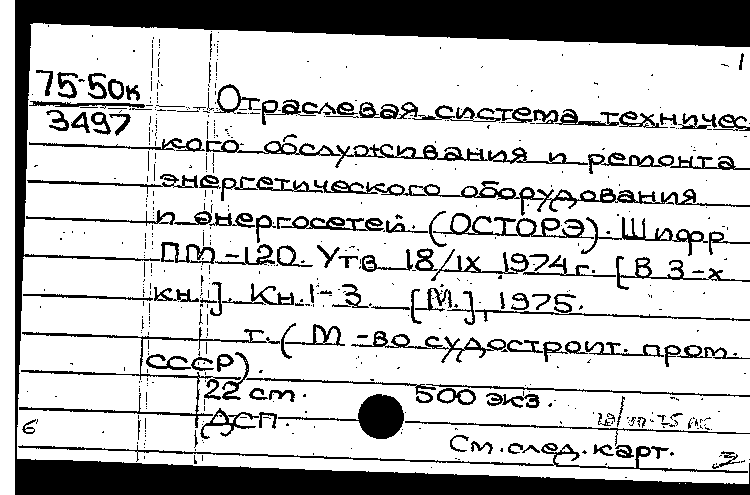 1
75-50к
3497
Отраслевая система техничес
кого обслуживания и ремонта
энергетического оборудования
и энергосетей. (ОСТОРЭ). Шифр
ПМ-120. Утв 18/IX 1974г. [В 3-х
кн.]. Кн.1-3. [М.], 1975.
т. (М-во судостроит. пром.
СССР).
22 см. 500 экз.
ДСП.
См. след. карт.
6